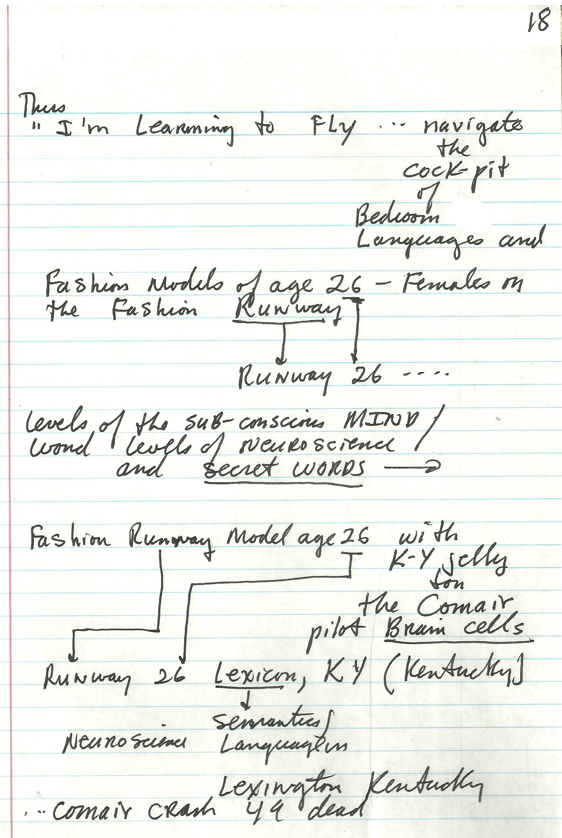 18
Thus
" I'm Learnning to FLY ... navigate
the
cock-pit
of
Bedroom
Languages and
Fashion Models of age 26 - Females on
the Fashion Runway
Runway 26 ....
levels of the sub-conscious MIND/
word levels of Neuroscience
and Secret WORDS
Fashion Runway Model age 26 with
K-Y jelly
on
the Comair
pilot Brain cells
Runway 26 Lexicon, KY (Kentucky)
Semantics/
Neuroscience Language
Lexington Kentucky
... Comair crash 49 dead